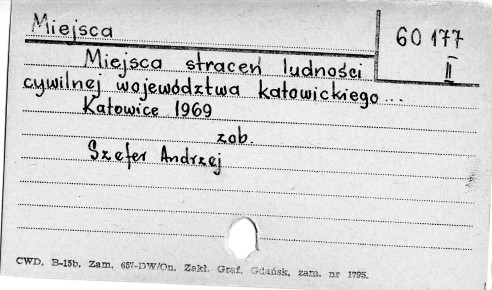 Miejsca
60 177
II
Miejsca straceń ludności
cywilnej województwa katowickiego...
Katowice 1969
zob.
Szefer Andrzej
CWD. B-15b. Zam. 657-DW/On. Zakł. Graf. Gdańsk, zam. nr 1795.